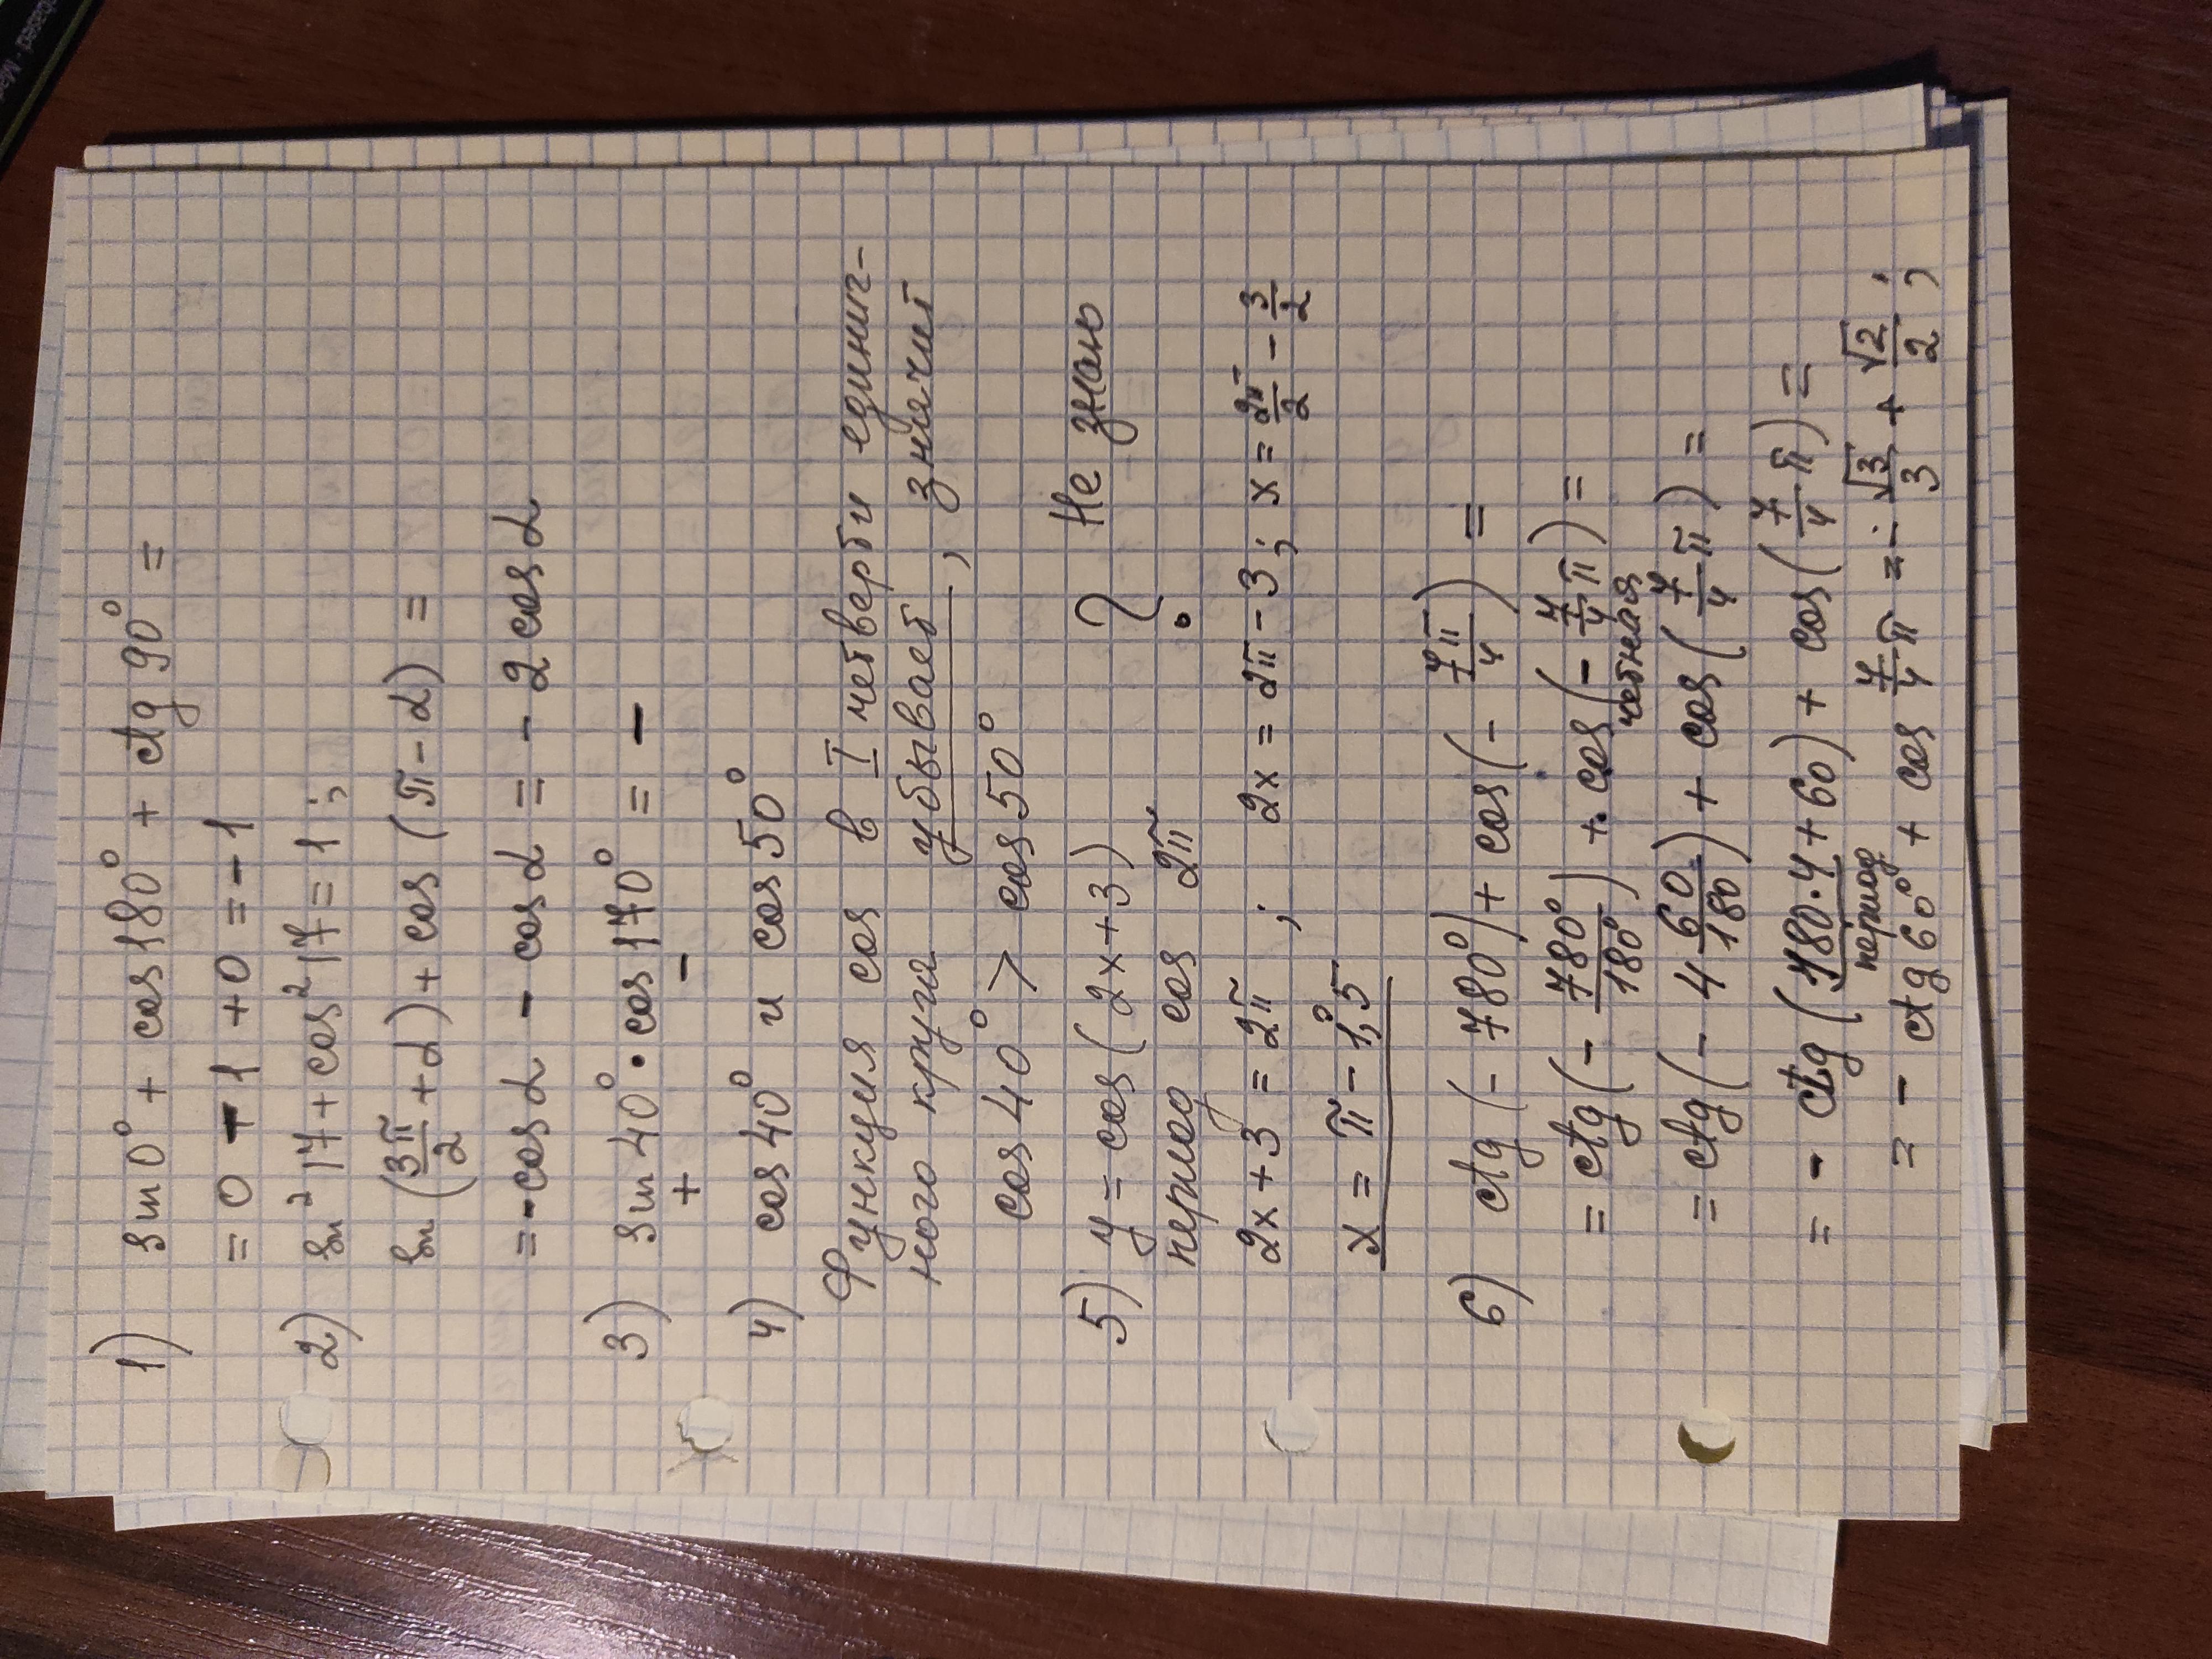 1) sin 0° + cos 180° + ctg 90° =
= 0 - 1 + 0 = -1
2) sin² 17 + cos² 17 = 1 ;
sin (3π/2 + α) + cos (π - α) =
= -cos α - cos α = - 2 cos α
3) sin 40° • cos 170° = -
+ -
4) cos 40° и cos 50°
Функция cos в I четверти единич-
ного круга убывает, значит
cos 40° > cos 50°
5) y = cos ( 2x + 3 ) ? Не знаю
период cos 2π
2x + 3 = 2π ; 2x = 2π - 3 ; x = 2π/2 - 3/2
x = π - 1,5
6) ctg (- 780°) + cos (- 7π/4) =
= ctg (- 780°/180°) + cos (- 7/4 π) =
четная
= ctg (- 4 60/180) + cos ( 7/4 π ) =
= - ctg ( 180·4 + 60 ) + cos ( 7/4 π ) =
период
= - ctg 60° + cos 7/4 π = - √3/3 + √2/2 ;